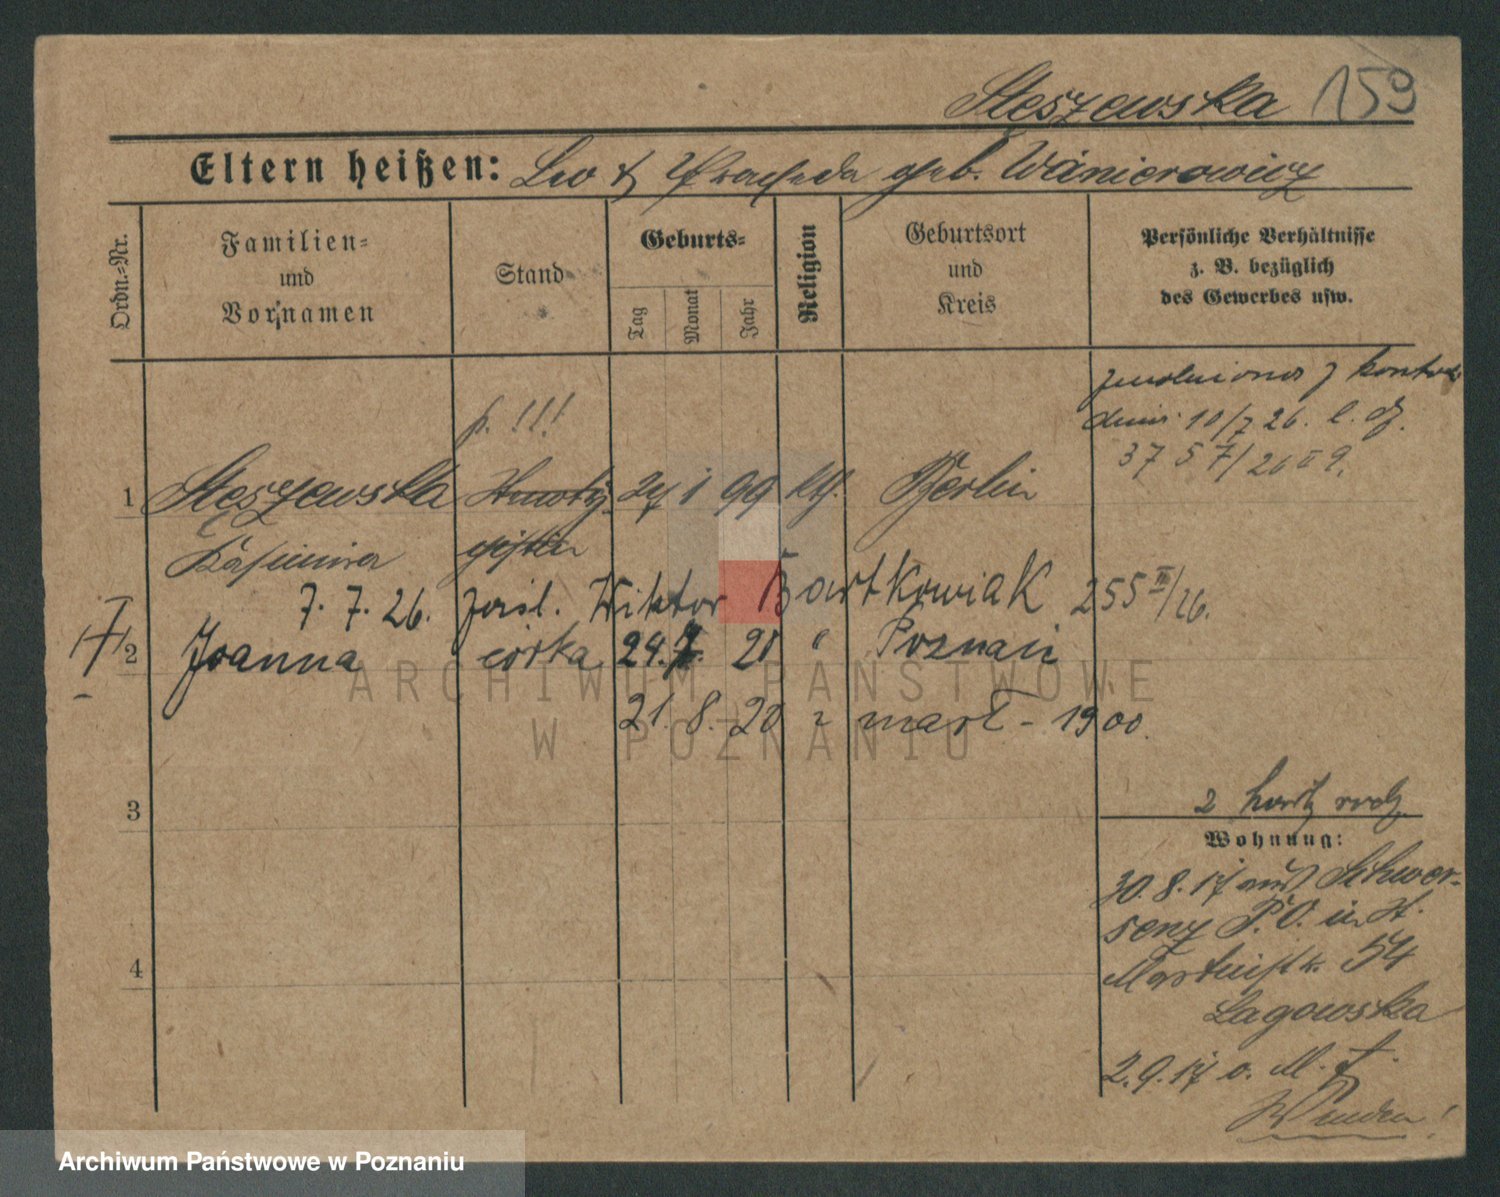 Steszewska 159
Eltern heißen: Leo & geb. Wanierowicz
Ordn.=Nr.
Familien=
und
Vornamen
Stand
Geburts=
Tag
Monat
Jahr
Religion
Geburtsort
und
Kreis
Persönliche Verhältnisse
z. B. bezüglich
des Gewerbes usw.
zwolniona z kontr
dnia 10/7 26. l. dz.
3757/26 II 9.
p. !!!
1 Stęszewska 24 1 99 kth. Berlin
Kasimira
7. 7. 26. zaśl. Wiktor Bartkowiak 255 II/26.
2 Joanna córka 24.7. 20 " Poznań
21. 8. 20 mart - 1900
3
2
Wohnung:
30.8.17 aus Schwer-
senz P.O. in St.
Martinstr. 54
Lagowska
2.9.17 o. M. f.
4
ARCHIWUM PAŃSTWOWE
W POZNANIU
Archiwum Państwowe w Poznaniu